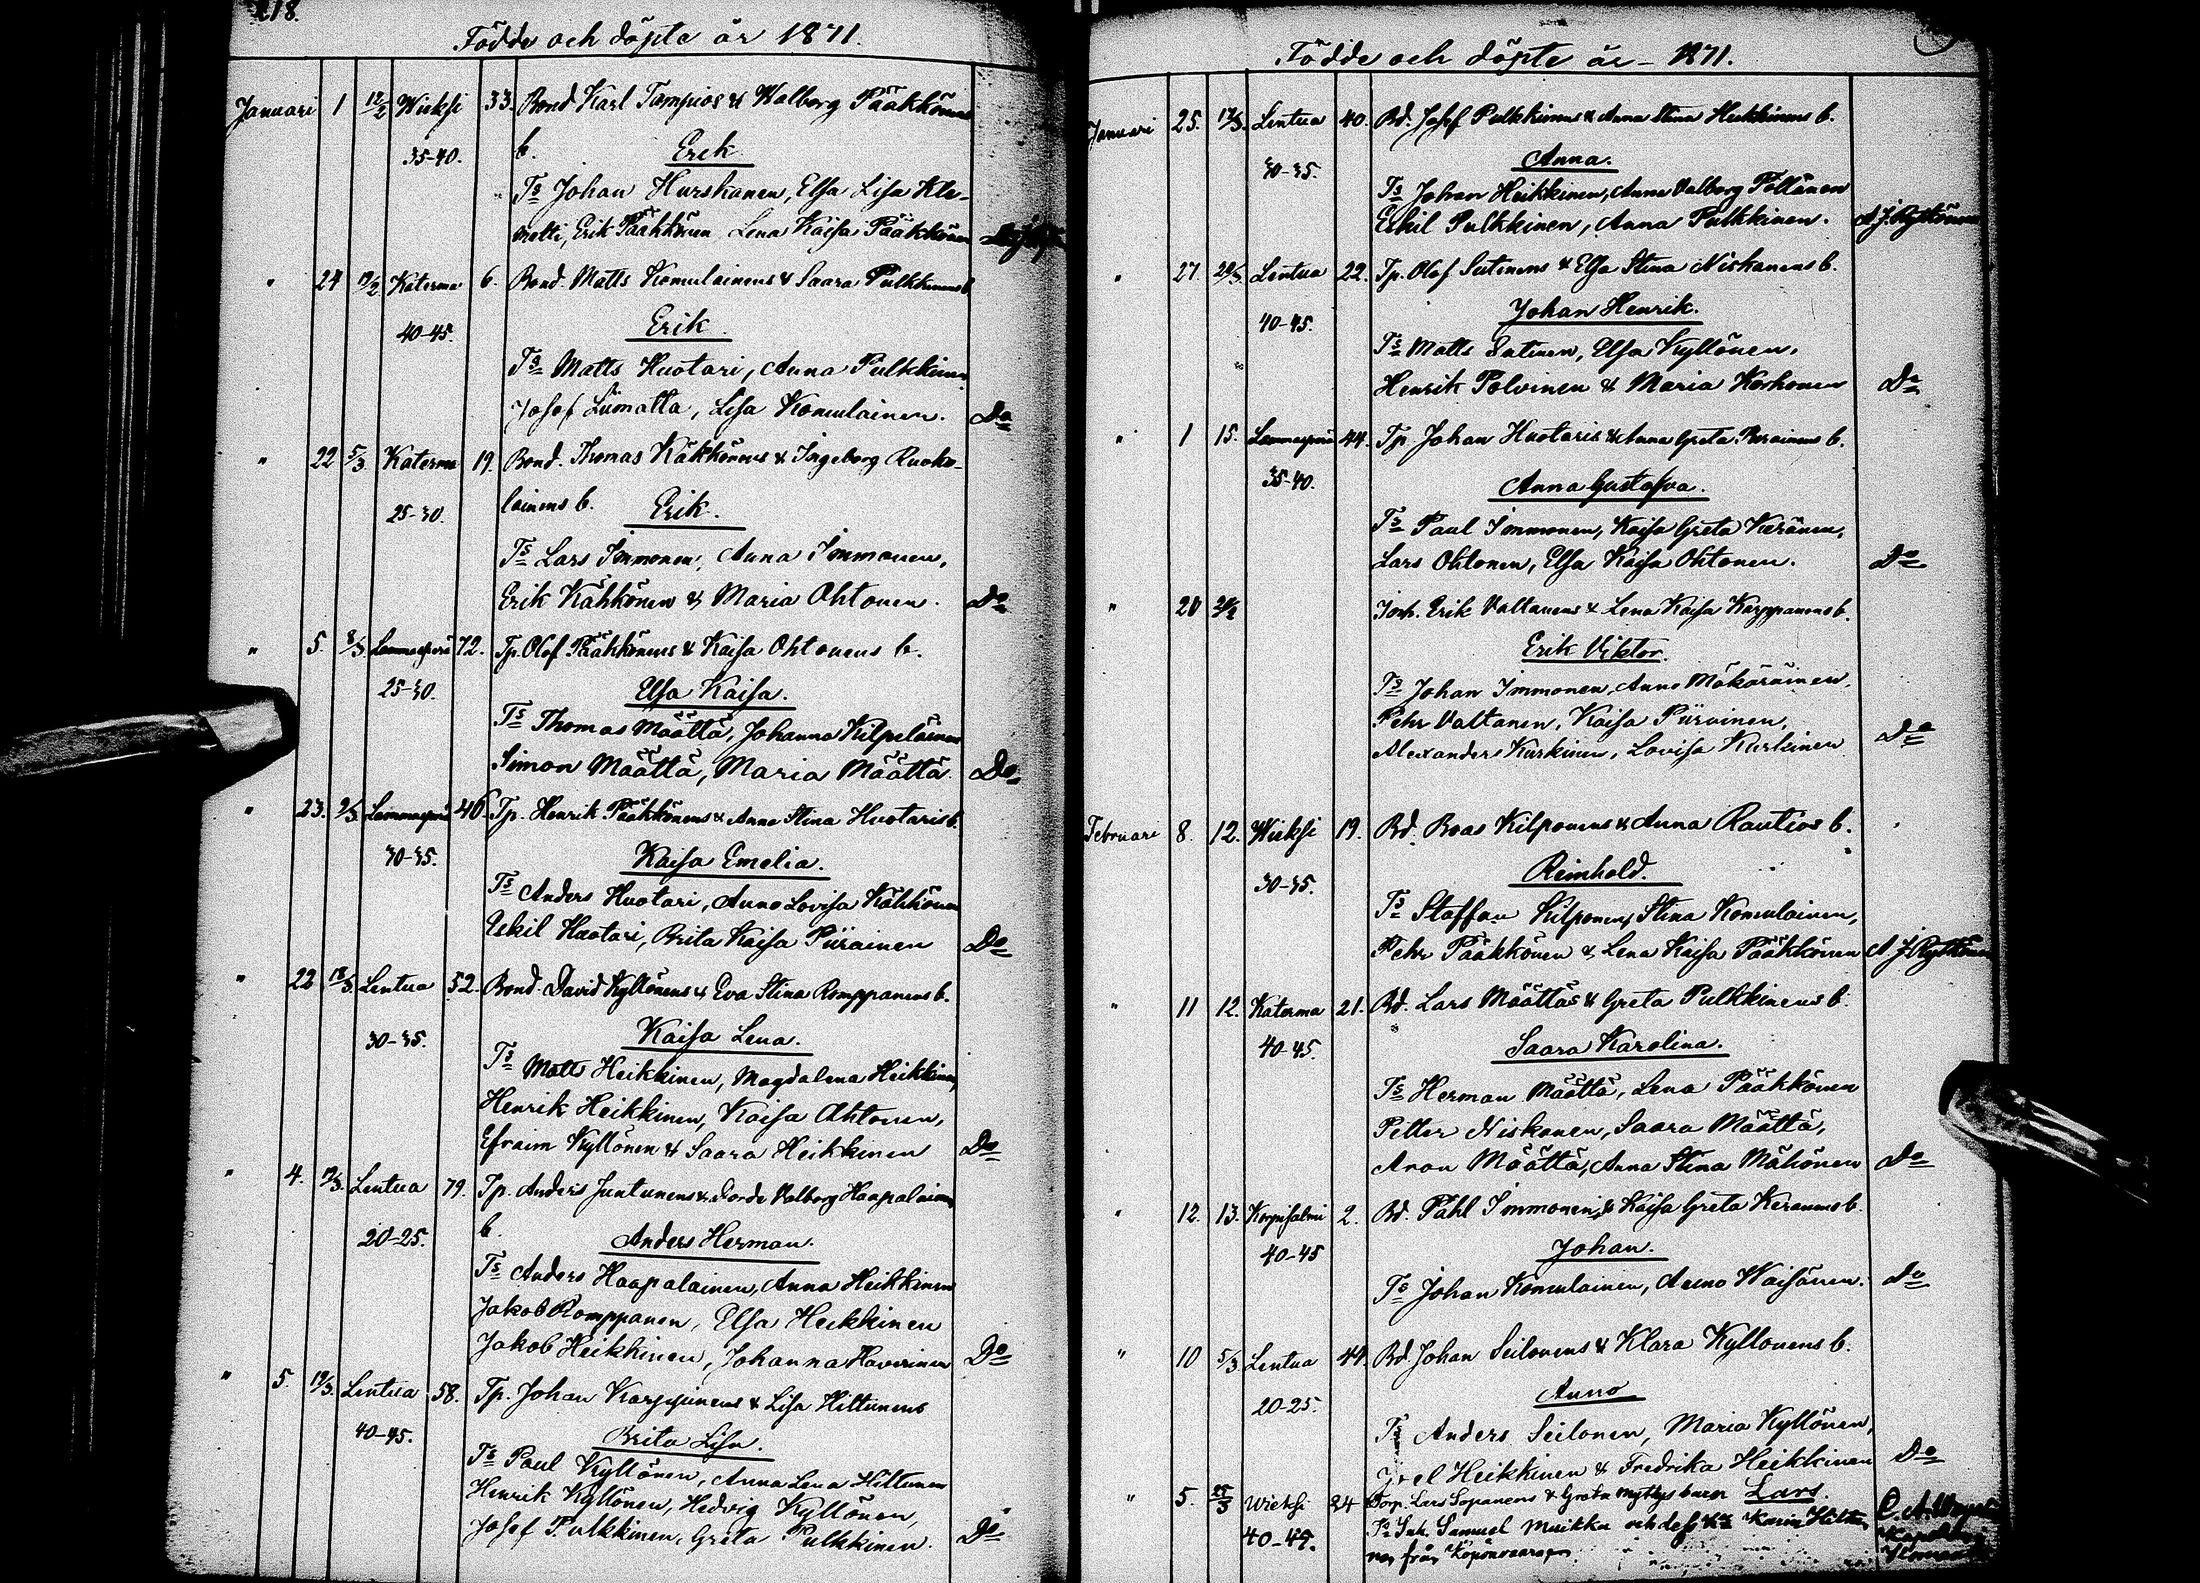 218.
Födde och döpte år 1871.
Januari 1 12/2 Wieksi 33. Bond. Karl Tampios & Walborg Pääkkönens
35-40. b. Erik
Ts Johan Hurskanen, Elsa Lisa Kle-
metti, Erik Pääkkönen Lena Kaisa Pääkkönen
" 24 12/2 Katerma 6. Bond. Matts Komulainens & Saara Pulkkinens b.
40-45. Erik.
Ts Matts Huotari, Anna Pulkkinen
Josef Liimatta, Lisa Komulainen. Do
" 22 5/3 Katerma 19. Bond. Thomas Kähkönens & Ingeborg Ruoko-
25-30. lainens b. Erik.
Ts Lars Immonen, Anna Immonen,
Erik Kähkönen & Maria Ohtonen. Do
" 5. 8/3 Lammasperä 72. Tp. Olof Pääkkönens & Kaisa Ohtonens b.
25-30. Elsa Kaisa.
Ts Thomas Määttä, Johanna Kilpeläinen
Simon Määttä, Maria Määttä Do
" 23. 9/3. Lammasperä 46. Tp. Henrik Pääkkönens & Anna Stina Huotaris b.
30-35. Kaisa Emelia.
Ts Anders Huotari, Anna Lovisa Kähkönen
Eskil Huotari, Brita Kaisa Piirainen Do
" 22 18/3. Lentua 52. Bond. David Kyllönens & Eva Stina Romppanens b.
30-35. Kaisa Lena.
Ts Matts Heikkinen, Magdalena Heikkinen,
Henrik Heikkinen, Kaisa Ohtonen,
Efraim Kyllönen & Saara Heikkinen Do
" 4. 19/3. Lentua 79. Tp. Anders Juntunens & Lorde Valborg Haapalainens
20-25. b. Anders Herman.
Ts Anders Haapalainen, Anna Heikkinen
Jakob Romppanen, Elsa Heikkinen
Jakob Heikkinen, Johanna Haverinen Do
" 5. 19/3. Lentua 58. Tp. Johan Karppinens & Lisa Hiltunens
40-45. Brita Lisa.
Ts Paul Kyllönen, Anna Lena Hiltunen
Henrik Kyllönen, Hedvig Kyllönen,
Josef Pulkkinen, Greta Pulkkinen. Do
Födde och döpte år - 1871.
Januari 25. 12/3. Lentua 40. Bd. Josef Pulkkinens & Anna Stina Heikkinens b.
30-35. Anna.
Ts Johan Heikkinen, Anna Valborg Pöllänen
Eskil Pulkkinen, Anna Pulkkinen. A. J. Rytkönen
" 27 20/3. Lentua 22. Tp. Olof Sutinens & Elsa Stina Niskanens b.
40-45. Johan Henrik.
Ts Matts Sutinen, Elsa Kyllönen,
Henrik Polvinen & Maria Korhonen Do
" 1 15. Lammasperä 44. Tp. Johan Huotaris & Anna Greta Piirainens b.
35-40. Anna Gustafva.
Ts Paul Immonen, Kaisa Greta Keränen,
Lars Ohtonen, Elsa Kaisa Ohtonen. Do
" 20 Inh. Erik Valtanens & Lena Kaisa Karppanens b.
Erik Viktor.
Ts Johan Immonen, Anna Mökäräinen,
Pehr Valtanen, Kaisa Piirainen,
Alexander Kurkinen, Lovisa Kurkinen Do
Februari 8. 12. Wieksi 19. Bd. Boas Kilponens & Anna Rautios b.
30-35. Reinhold.
Ts Staffan Kilponen, Stina Komulainen,
Pehr Pääkkönen & Lena Kaisa Pääkkönen A. J. Rytkönen
" 11 12. Katerma 21. Bd. Lars Määttäs & Greta Pulkkinens b.
40-45. Saara Karolina.
Ts Herman Määttä, Lena Pääkkönen
Petter Niskanen, Saara Määttä,
Aron Määttä, Anna Stina Mähönen Do
" 12. 13. Korpisalmi 2. Bd. Påhl Immonen & Kaisa Greta Keränens b.
40-45 Johan.
Ts Johan Komulainen, Anna Waisänen. Do
" 10 5/3. Lentua 44. Bd. Johan Seilonens & Klara Kyllönens b.
20-25. Anna
Ts Anders Seilonen, Maria Kyllönen,
Joel Heikkinen & Fredrika Heikkinen Do
" 5. 25/3 Wieksi 24 Torp. Lars Sopanens & Greta Myllys barn Lars.
40-45. Ts Inh. Samuel Muikku och dess Karin Hiltu
nen från